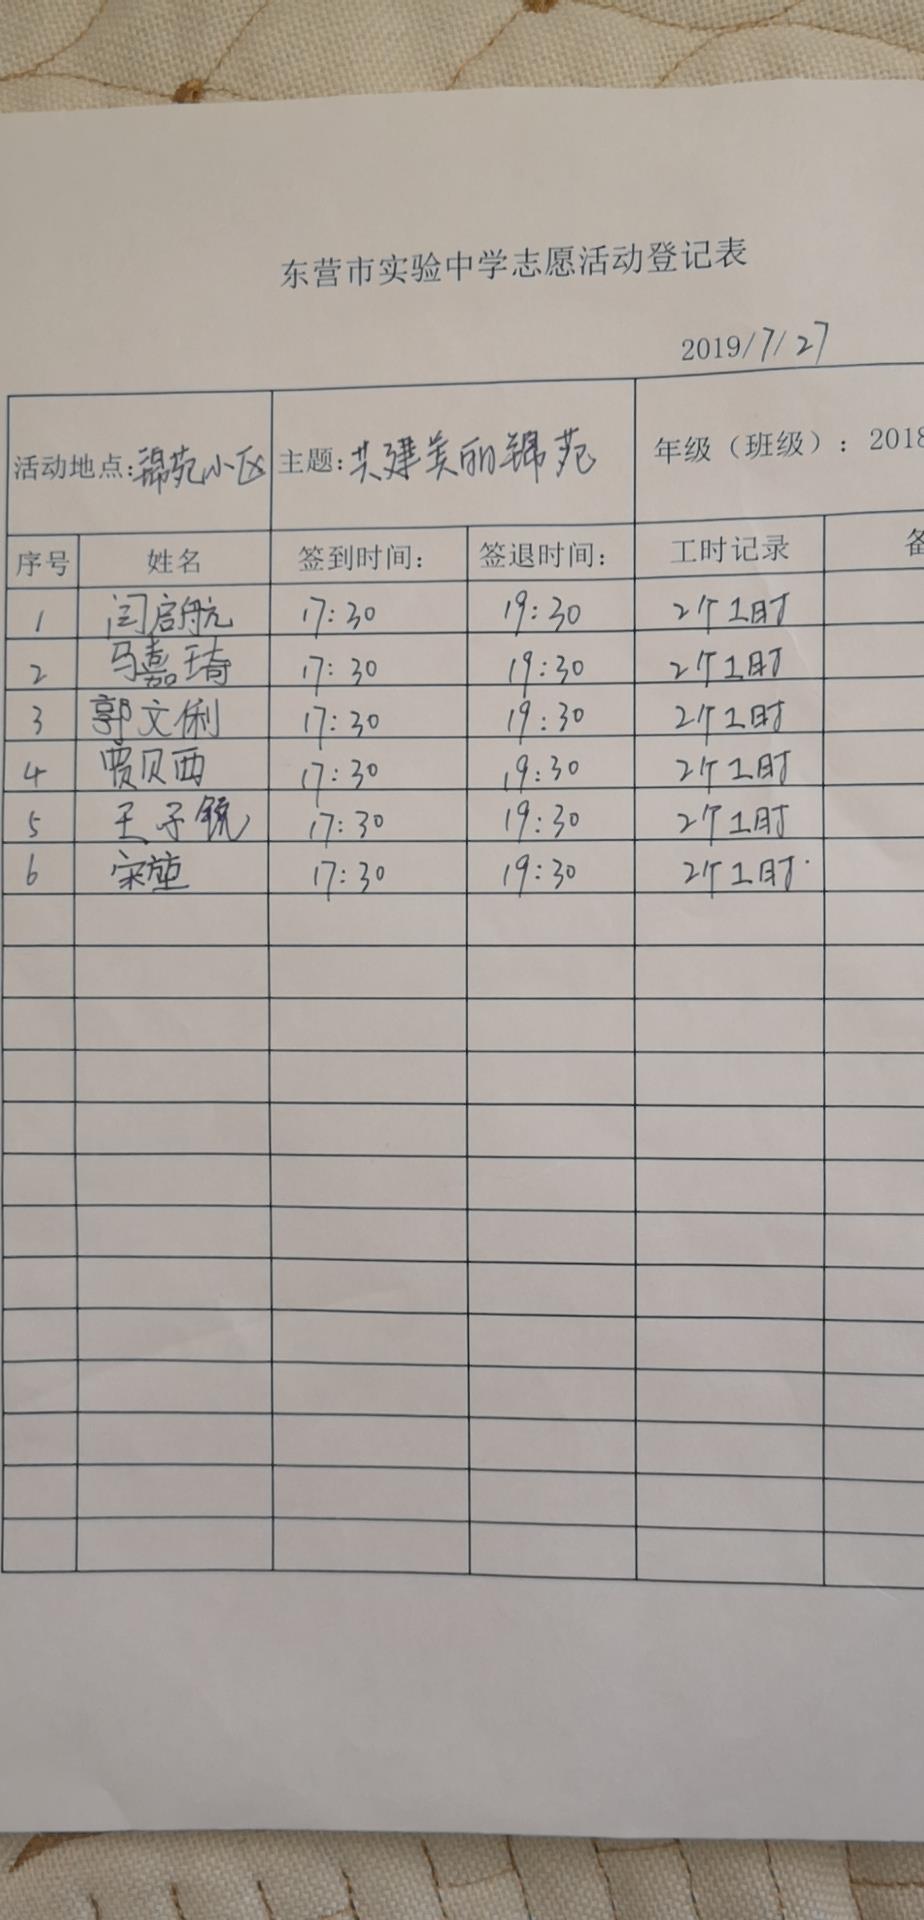 东营市实验中学志愿活动登记表
2019/7/27
活动地点:锦苑小区 主题:共建美丽锦苑 年级（班级）: 2018
序号 姓名 签到时间: 签退时间: 工时记录 备
1 闫启航 17:30 19:30 2个工时
2 马嘉琦 17:30 19:30 2个工时
3 郭文俐 17:30 19:30 2个工时
4 贾贝西 17:30 19:30 2个工时
5 王子锐 17:30 19:30 2个工时
6 宋 17:30 19:30 2个工时